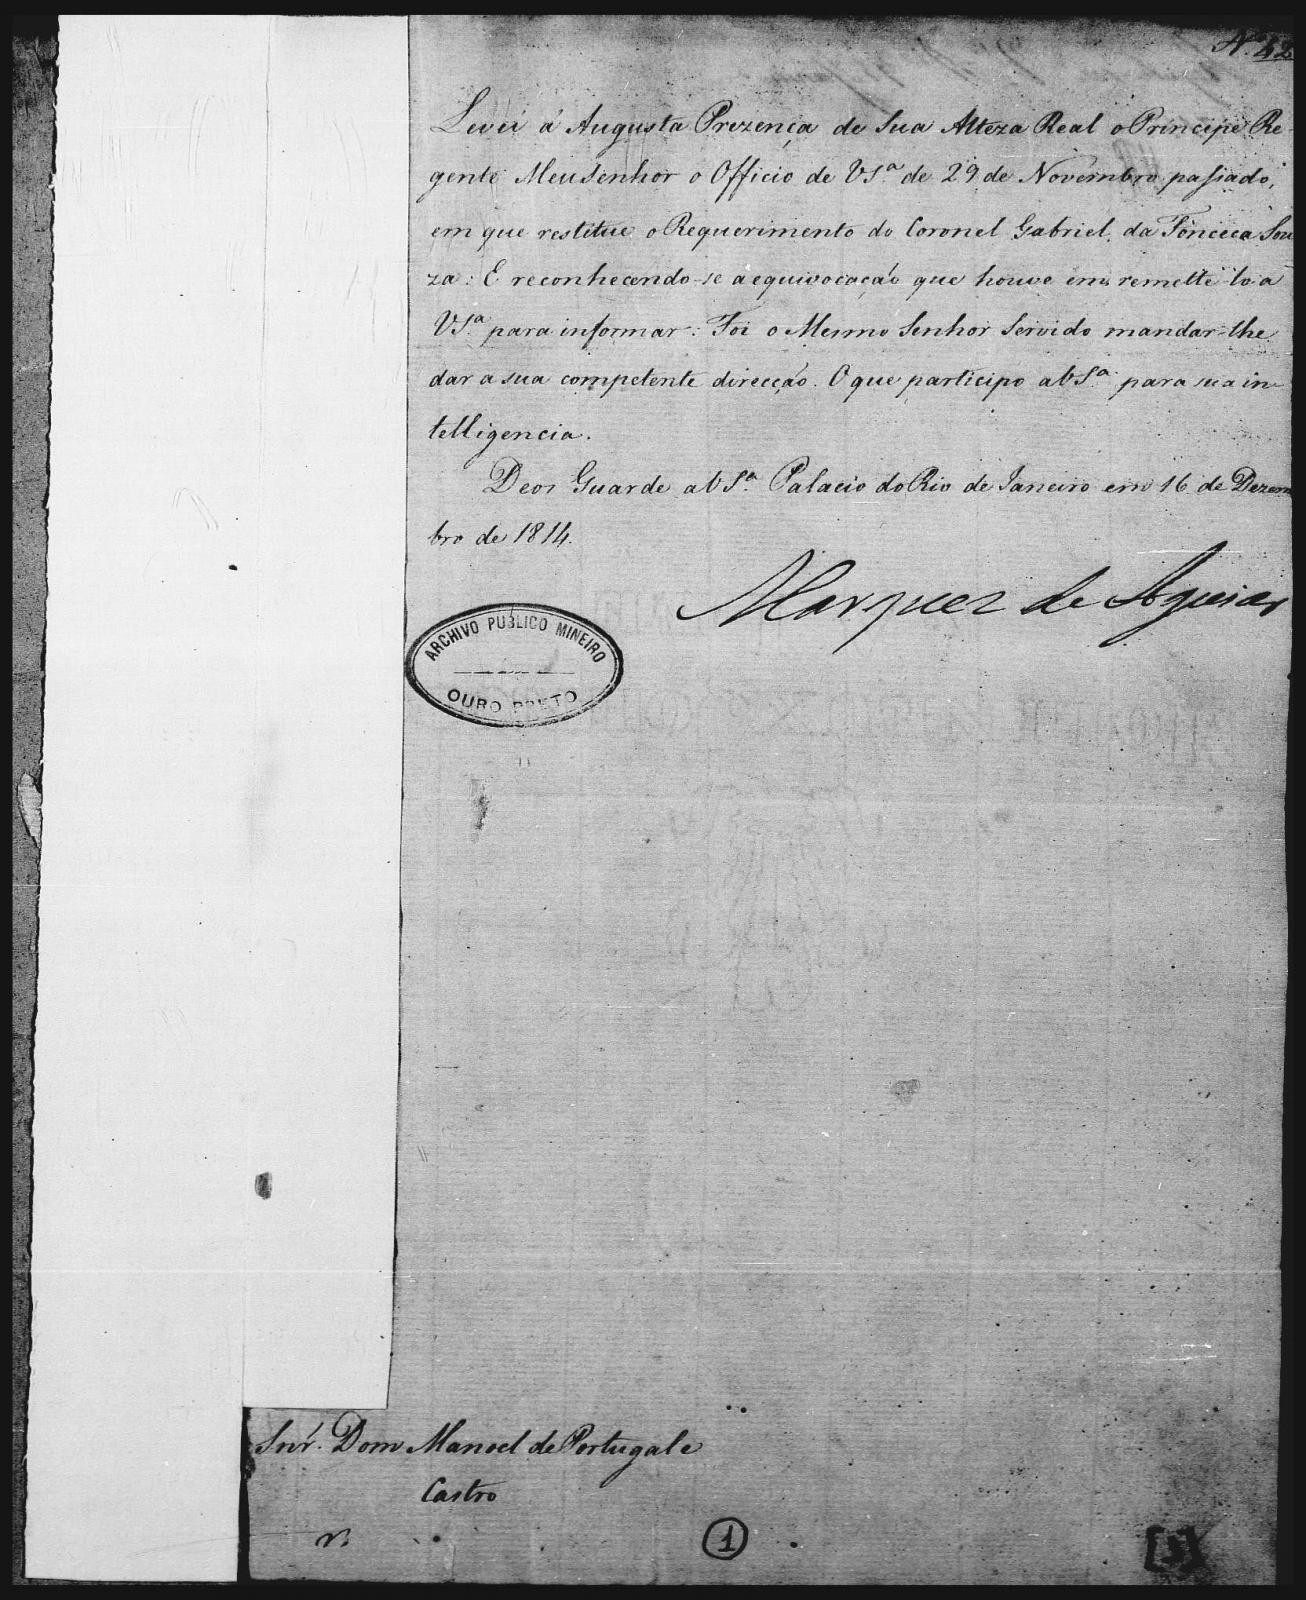 N. 42
Levei á Augusta Prezença de Sua Alteza Real o Principe Re-
gente Meu Senhor o Officio de VS.ª de 29 de Novembro passado,
em que restitue o Requerimento do Coronel Gabriel da Fonceca Sou
za: E reconhecendo-se a equivocação que houve em remette-lo a
VS.ª para informar: Foi o Mesmo Senhor Servido mandar-lhe
dar a sua competente direcção. O que participo a VS.ª para sua in-
telligencia.
Deos Guarde a VS.ª Palacio do Rio de Janeiro em 16 de Dezem
bro de 1814.
Marquez de Aguiar
ARCHIVO PUBLICO MINEIRO
OURO PRETO
Snr. Dom Manoel de Portugal e
Castro
1